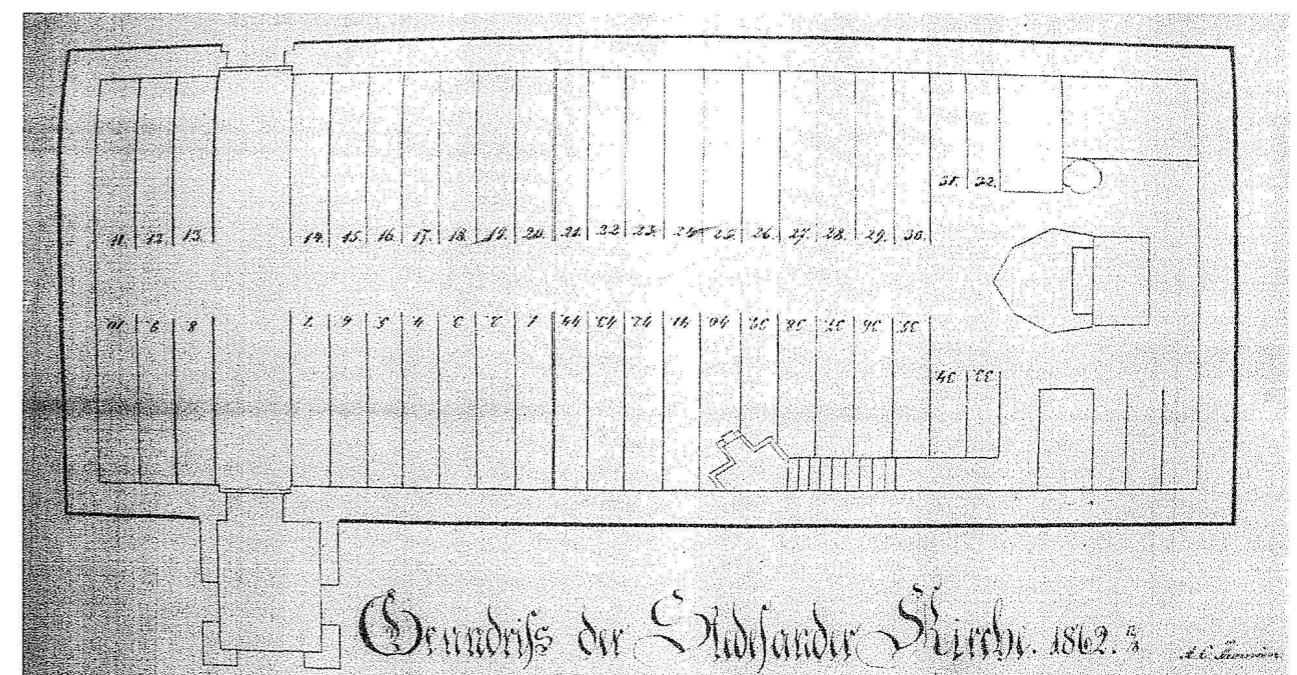 31. 32.
11. 12. 13. 14. 15. 16. 17. 18. 19. 20. 21. 22. 23. 24. 25. 26. 27. 28. 29. 30.
10 9 8 7 6 5 4 3 2 1 44 43 42 41 40 39 38 37 36 35
34 33
Grundriſs der Stedeſander Kirche. 1862.
A. C.